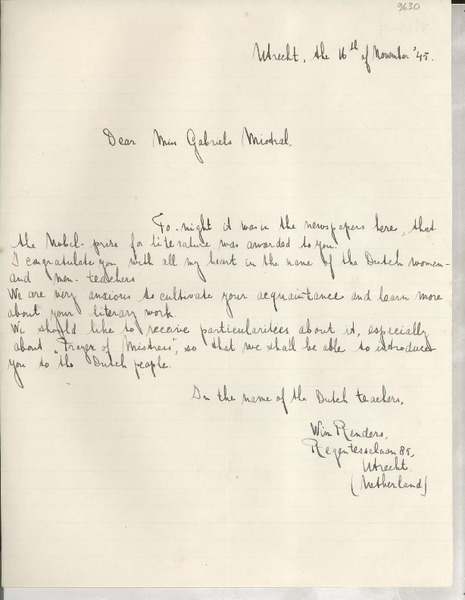 9630
Utrecht, the 16th of November '45.
Dear Miss Gabriela Mistral,
To-night it was in the newspapers here, that
the Nobel-prize for literature was awarded to you.
I congratulate you with all my heart in the name of the Dutch women-
and men-teachers
We are very anxious to cultivate your acquaintance and learn more
about your literary work
We should like to receive particularitees about it, especially
about "Prayer of Mistress", so that we shall be able to introduce
you to the Dutch people.
In the name of the Dutch teachers,
Wim Renders,
Regentesselaan 85,
Utrecht
(Netherland)